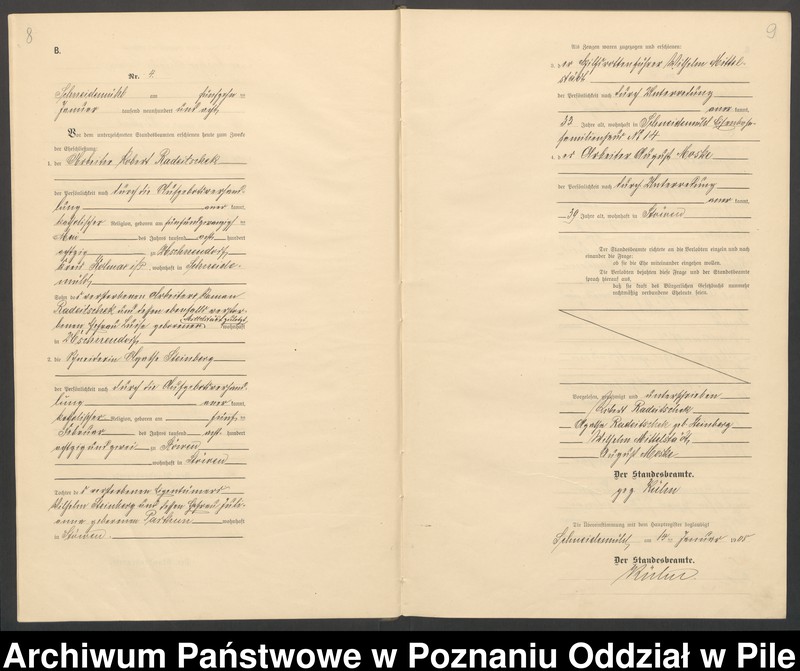 8
B.
Nr. 4.
Schneidemühl am fünfzehn ten
Januar tausend neunhundert und acht
Vor dem unterzeichneten Standesbeamten erschienen heute zum Zwecke
der Eheschließung:
1. der Arbeiter Robert Radeitschek
der Persönlichkeit nach durch die Aufgebotsverhand-
lung aner kannt,
katholischer Religion, geboren am fünfundzwanzigsten
Mai des Jahres tausend acht hundert
achtzig zu
Kreis Kolmar i/P. wohnhaft in Schneide-
mühl,
Sohn des verstorbenen Arbeiters
Radeitschek und dessen ebenfalls verstor-
benen Ehefrau geborener Mittelstädt zuletzt wohnhaft
in
2. die Schneiderin Agathe Steinberg
der Persönlichkeit nach durch die Aufgebotsverhand-
lung aner kannt,
katholischer Religion, geboren am fünften
Februar des Jahres tausend acht hundert
achtzig und zwei zu Stöwen
wohnhaft in Stöwen
Tochter des verstorbenen Eigentümers
Wilhelm Steinberg und dessen Ehefrau Juli-
anna geborenen wohnhaft
in Stöwen.
9
Als Zeugen waren zugezogen und erschienen:
3. der Hilfsrottenführer Wilhelm Mittel-
städt
der Persönlichkeit nach durch Unterredung
aner kannt,
33 Jahre alt, wohnhaft in Schneidemühl Eisenbahn-
familienhaus No 14
4. der Arbeiter August Moske
der Persönlichkeit nach durch Unterredung
aner kannt,
39 Jahre alt, wohnhaft in Stöwen
Der Standesbeamte richtete an die Verlobten einzeln und nach
einander die Frage:
ob sie die Ehe miteinander eingehen wollen.
Die Verlobten bejahten diese Frage und der Standesbeamte
sprach hierauf aus,
daß sie kraft des Bürgerlichen Gesetzbuchs nunmehr
rechtmäßig verbundene Eheleute seien.
Vorgelesen, genehmigt und unterschrieben
Robert Radeitschek
Agathe Radeitschek geb Steinberg
Wilhelm Mittelstädt
August Moske
Der Standesbeamte.
gez Kühn
Die Übereinstimmung mit dem Hauptregister beglaubigt
Schneidemühl, am ten Januar 19 08
Der Standesbeamte.
Kühn
Archiwum Państwowe w Poznaniu Oddział w Pile